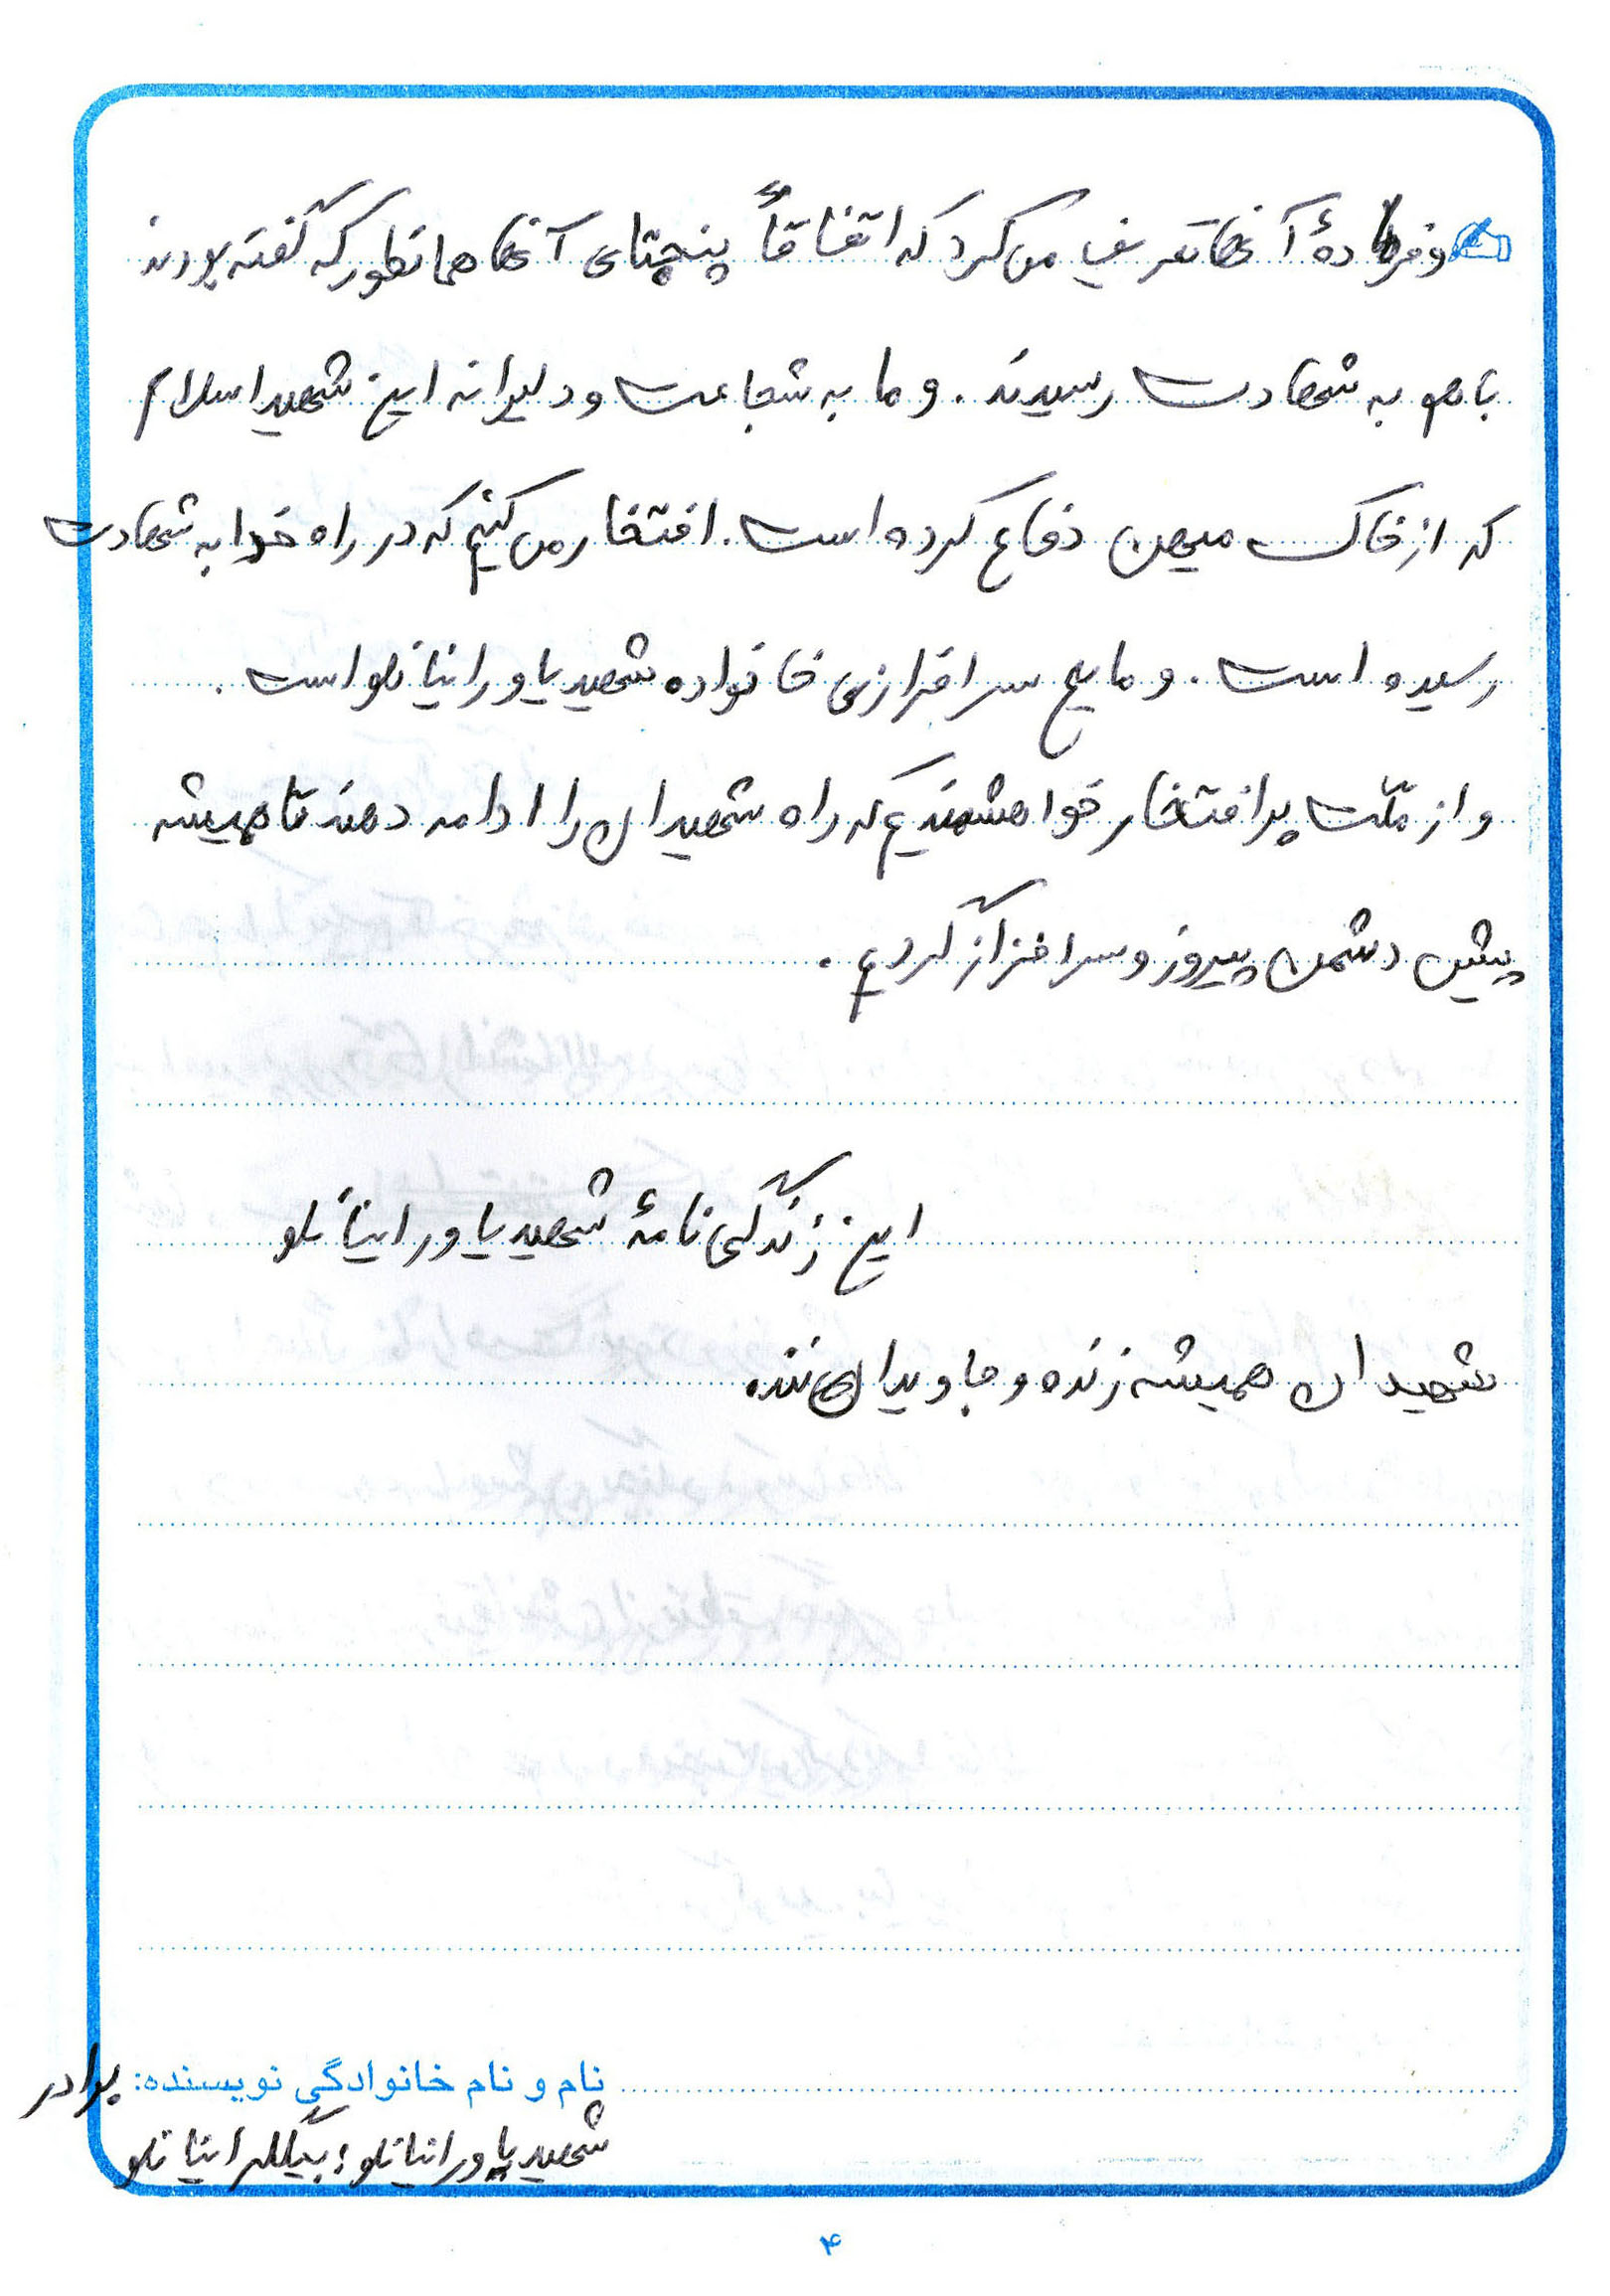 و فرماندهٔ آنها تعریف می‌کرد که اتفاقاً پنجتای آنها همانطور که گفته بودند
با هم به شهادت رسیدند. و ما به شجاعت و دلیرانه این شهید اسلام
که از خاک میهن دفاع کرده است. افتخار می‌کنیم که در راه خدا به شهادت
رسیده است. و مایع سرافرازی خانواده شهید یاور اینانلو است.
و از ملت پر افتخار خواهشمندیم که راه شهیدان را ادامه دهند تا همیشه
پیش دشمن پیروز و سرافراز گردیم.
این زندگی نامهٔ شهید یاور اینانلو
شهیدان همیشه زنده و جاویدان‌اند.
نام و نام خانوادگی نویسنده: برادر
شهید یاور اینانلو؛ بیگلر اینانلو
۴